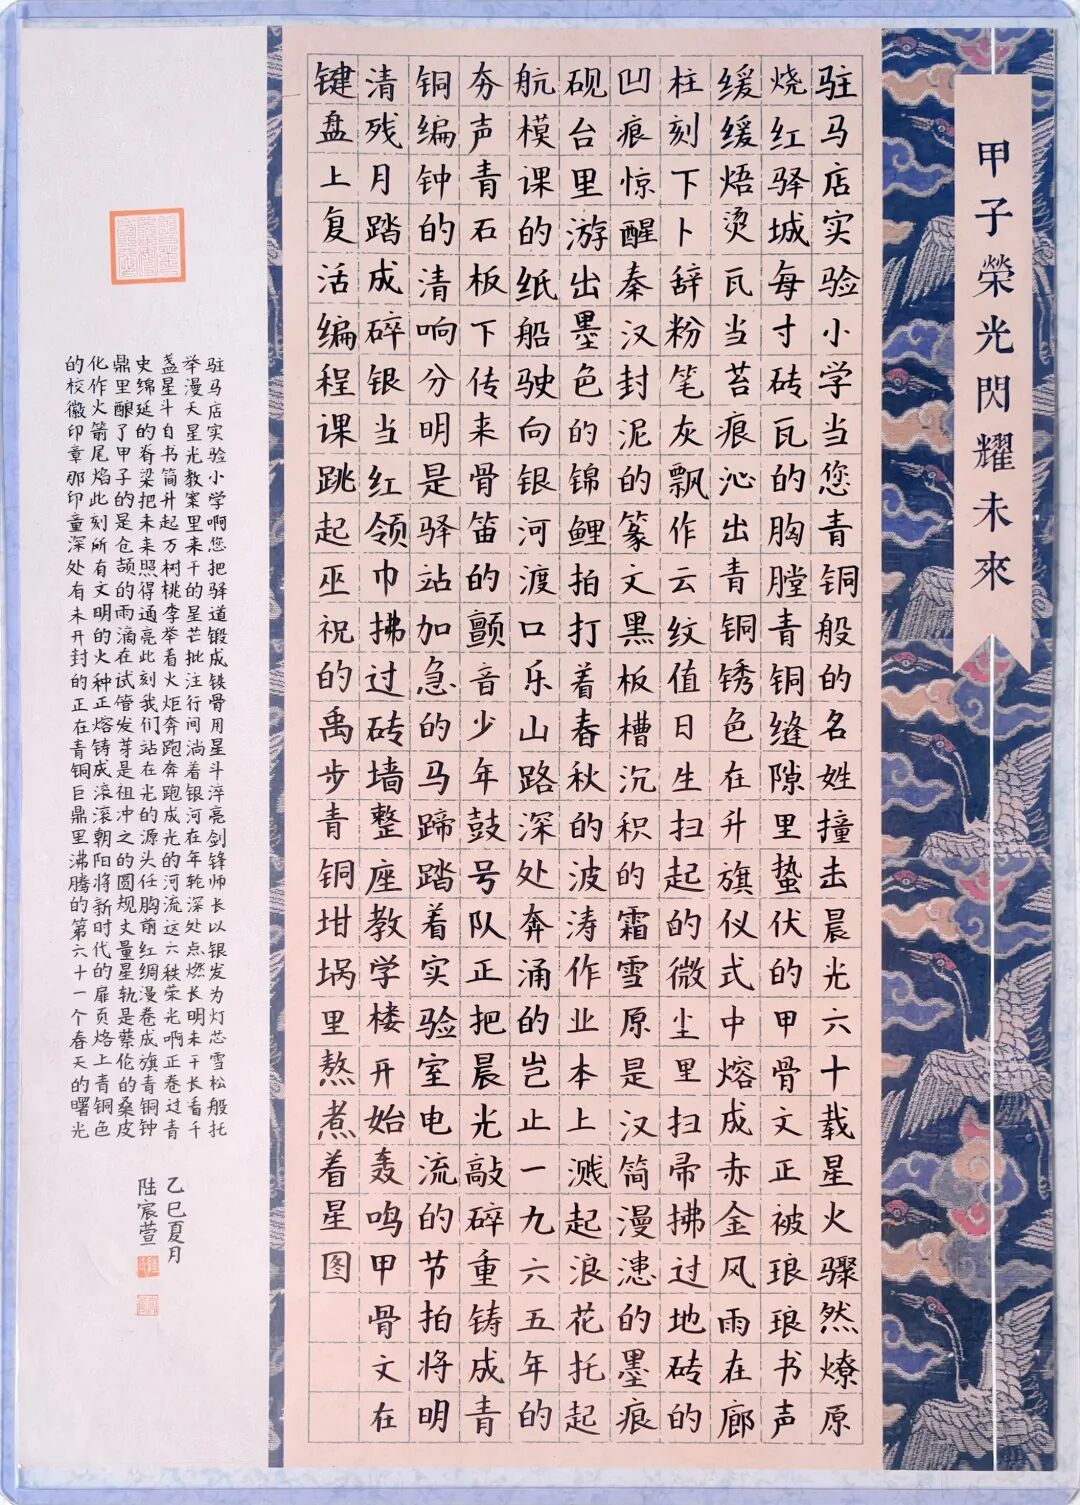 甲子榮光閃耀未來
驻马店实验小学当您青铜般的名姓撞击晨光六十载星火骤然燎原
烧红驿城每寸砖瓦的胸膛青铜缝隙里蛰伏的甲骨文正被琅琅书声
缓缓焐烫瓦当苔痕沁出青铜锈色在升旗仪式中熔成赤金风雨在廊
柱刻下卜辞粉笔灰飘作云纹值日生扫起的微尘里扫帚拂过地砖的
凹痕惊醒秦汉封泥的篆文黑板槽沉积的霜雪原是汉简漫漶的墨痕
砚台里游出墨色的锦鲤拍打着春秋的波涛作业本上溅起浪花托起
航模课的纸船驶向银河渡口乐山路深处奔涌的岂止一九六五年的
夯声青石板下传来骨笛的颤音少年鼓号队正把晨光敲碎重铸成青
铜编钟的清响分明是驿站加急的马蹄踏着实验室电流的节拍将明
清残月踏成碎银当红领巾拂过砖墙整座教学楼开始轰鸣甲骨文在
键盘上复活编程课跳起巫祝的禹步青铜坩埚里熬煮着星图
驻马店实验小学啊您把驿道锻成铁骨用星斗淬亮剑锋师长以银发为灯芯雪松般托
举漫天星光教案里来干的星芒批注行间淌着银河在年轮深处点燃长明未干长看千
盏星斗自书简升起万树桃李举着火炬奔跑奔跑成光的河流这六秩荣光啊正卷过青
史绵延的脊梁把未来照得通亮此刻我们站在光的源头任胸前红绸漫卷成旗青铜钟
鼎里酿了甲子的是仓颉的雨滴在试管发芽是祖冲之的圆规丈量星轨是蔡伦的桑皮
化作火箭尾焰此刻所有文明的火种正熔铸成滚滚朝阳将新时代的扉页烙上青铜色
的校徽印章那印章深处有未开封的正在青铜巨鼎里沸腾的第六十一个春天的曙光
乙巳夏月
陆宸萱